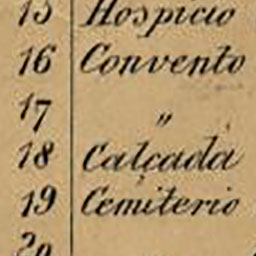 15 Hospicio
16 Convento
17 "
18 Calçada
19 Cemiterio
20